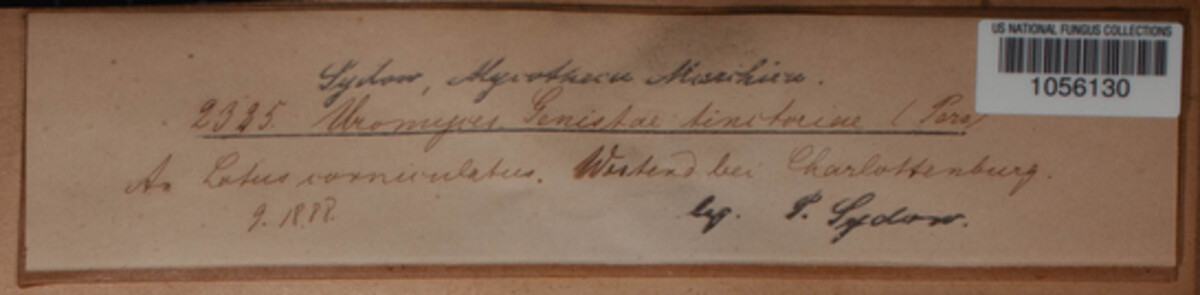 US NATIONAL FUNGUS COLLECTIONS
1056130
Sydow, Mycotheca Marchica.
2325. Uromyces Genistae tinctoriae (Pers)
An Lotus corniculatus. Westend bei Charlottenburg.
9. 1888. leg. P. Sydow.